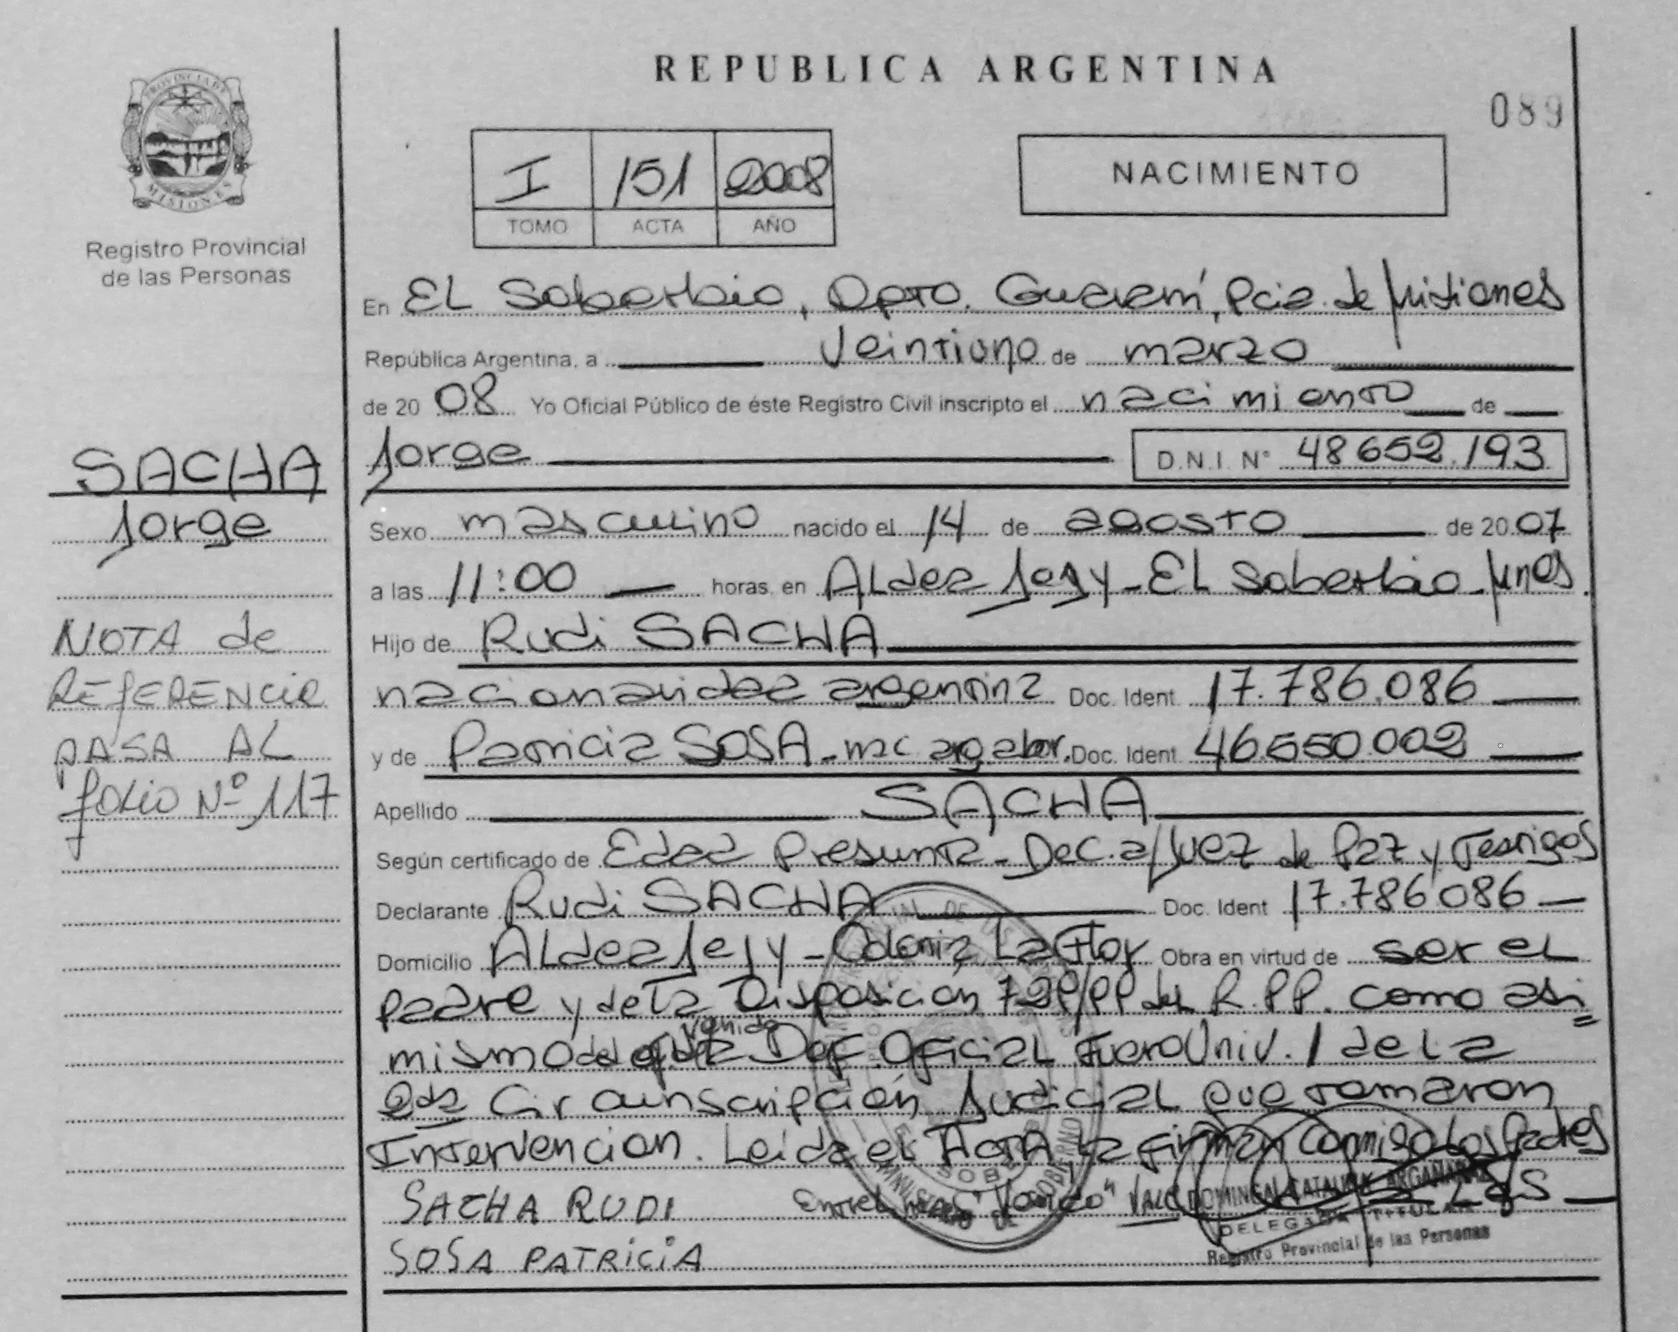 REPUBLICA ARGENTINA
089
PROVINCIA DE
MISIONES
Registro Provincial
de las Personas
I 151 2008
TOMO ACTA AÑO
NACIMIENTO
En EL Soberbio, Dpto. Guaraní, Pcia. de Misiones
República Argentina, a Veintiuno de marzo
de 20 08 Yo Oficial Público de éste Registro Civil inscripto el nacimiento de
Jorge D.N.I. Nº 48652.193
SACHA
Jorge
Sexo masculino nacido el 14 de agosto de 20 07
a las 11:00 horas. en ALdea Jejy - EL Soberbio - Mnes.
NOTA de
REfERENCIA
PASA AL
folio Nº 117
Hijo de Rudi SACHA
nacionalidad argentina Doc. Ident 17.786.086
y de Patricia SOSA - nac argent. Doc. Ident. 46.550.002
Apellido SACHA
Según certificado de Edad Presunta - Dec. a/Juez de Paz y Testigos
Declarante Rudi SACHA Doc. Ident 17.786086
Domicilio ALdea Jejy - Colonia La Flor Obra en virtud de ser el
padre y de la Disposicion del R.P.P. como asi
mismo Def. Oficial Fuero Univ. 1 de la
2da Circunscripción Judicial que tomaron
Intervencion. Leida el Acta la firman conmigo los Padres
SACHA RUDI Entre Lineas "Venido" VALE
SOSA PATRICIA
DELEGADA TITULAR
Registro Provincial de las Personas